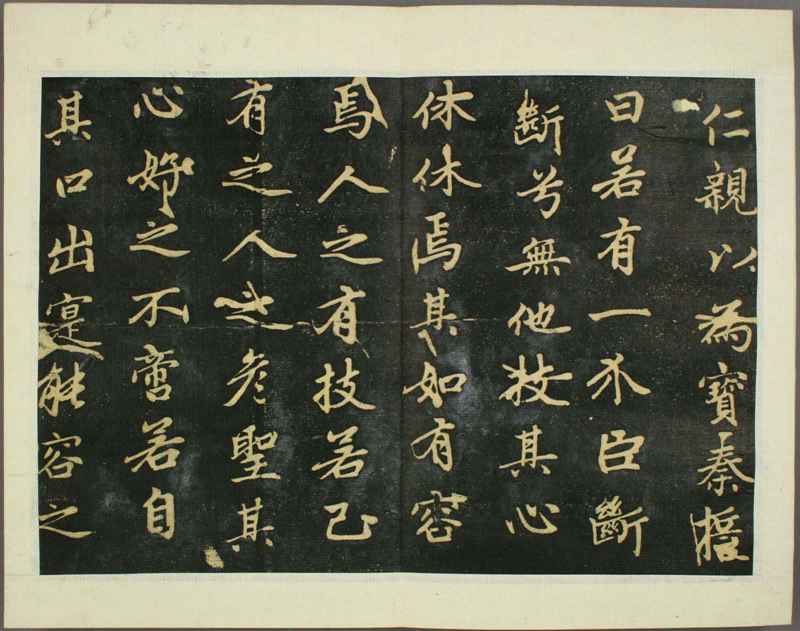 仁親以為寶秦誓
曰若有一个臣斷
斷兮無他技其心
休休焉其如有容
焉人之有技若己
有之人之彥聖其
心好之不啻若自
其口出寔能容之